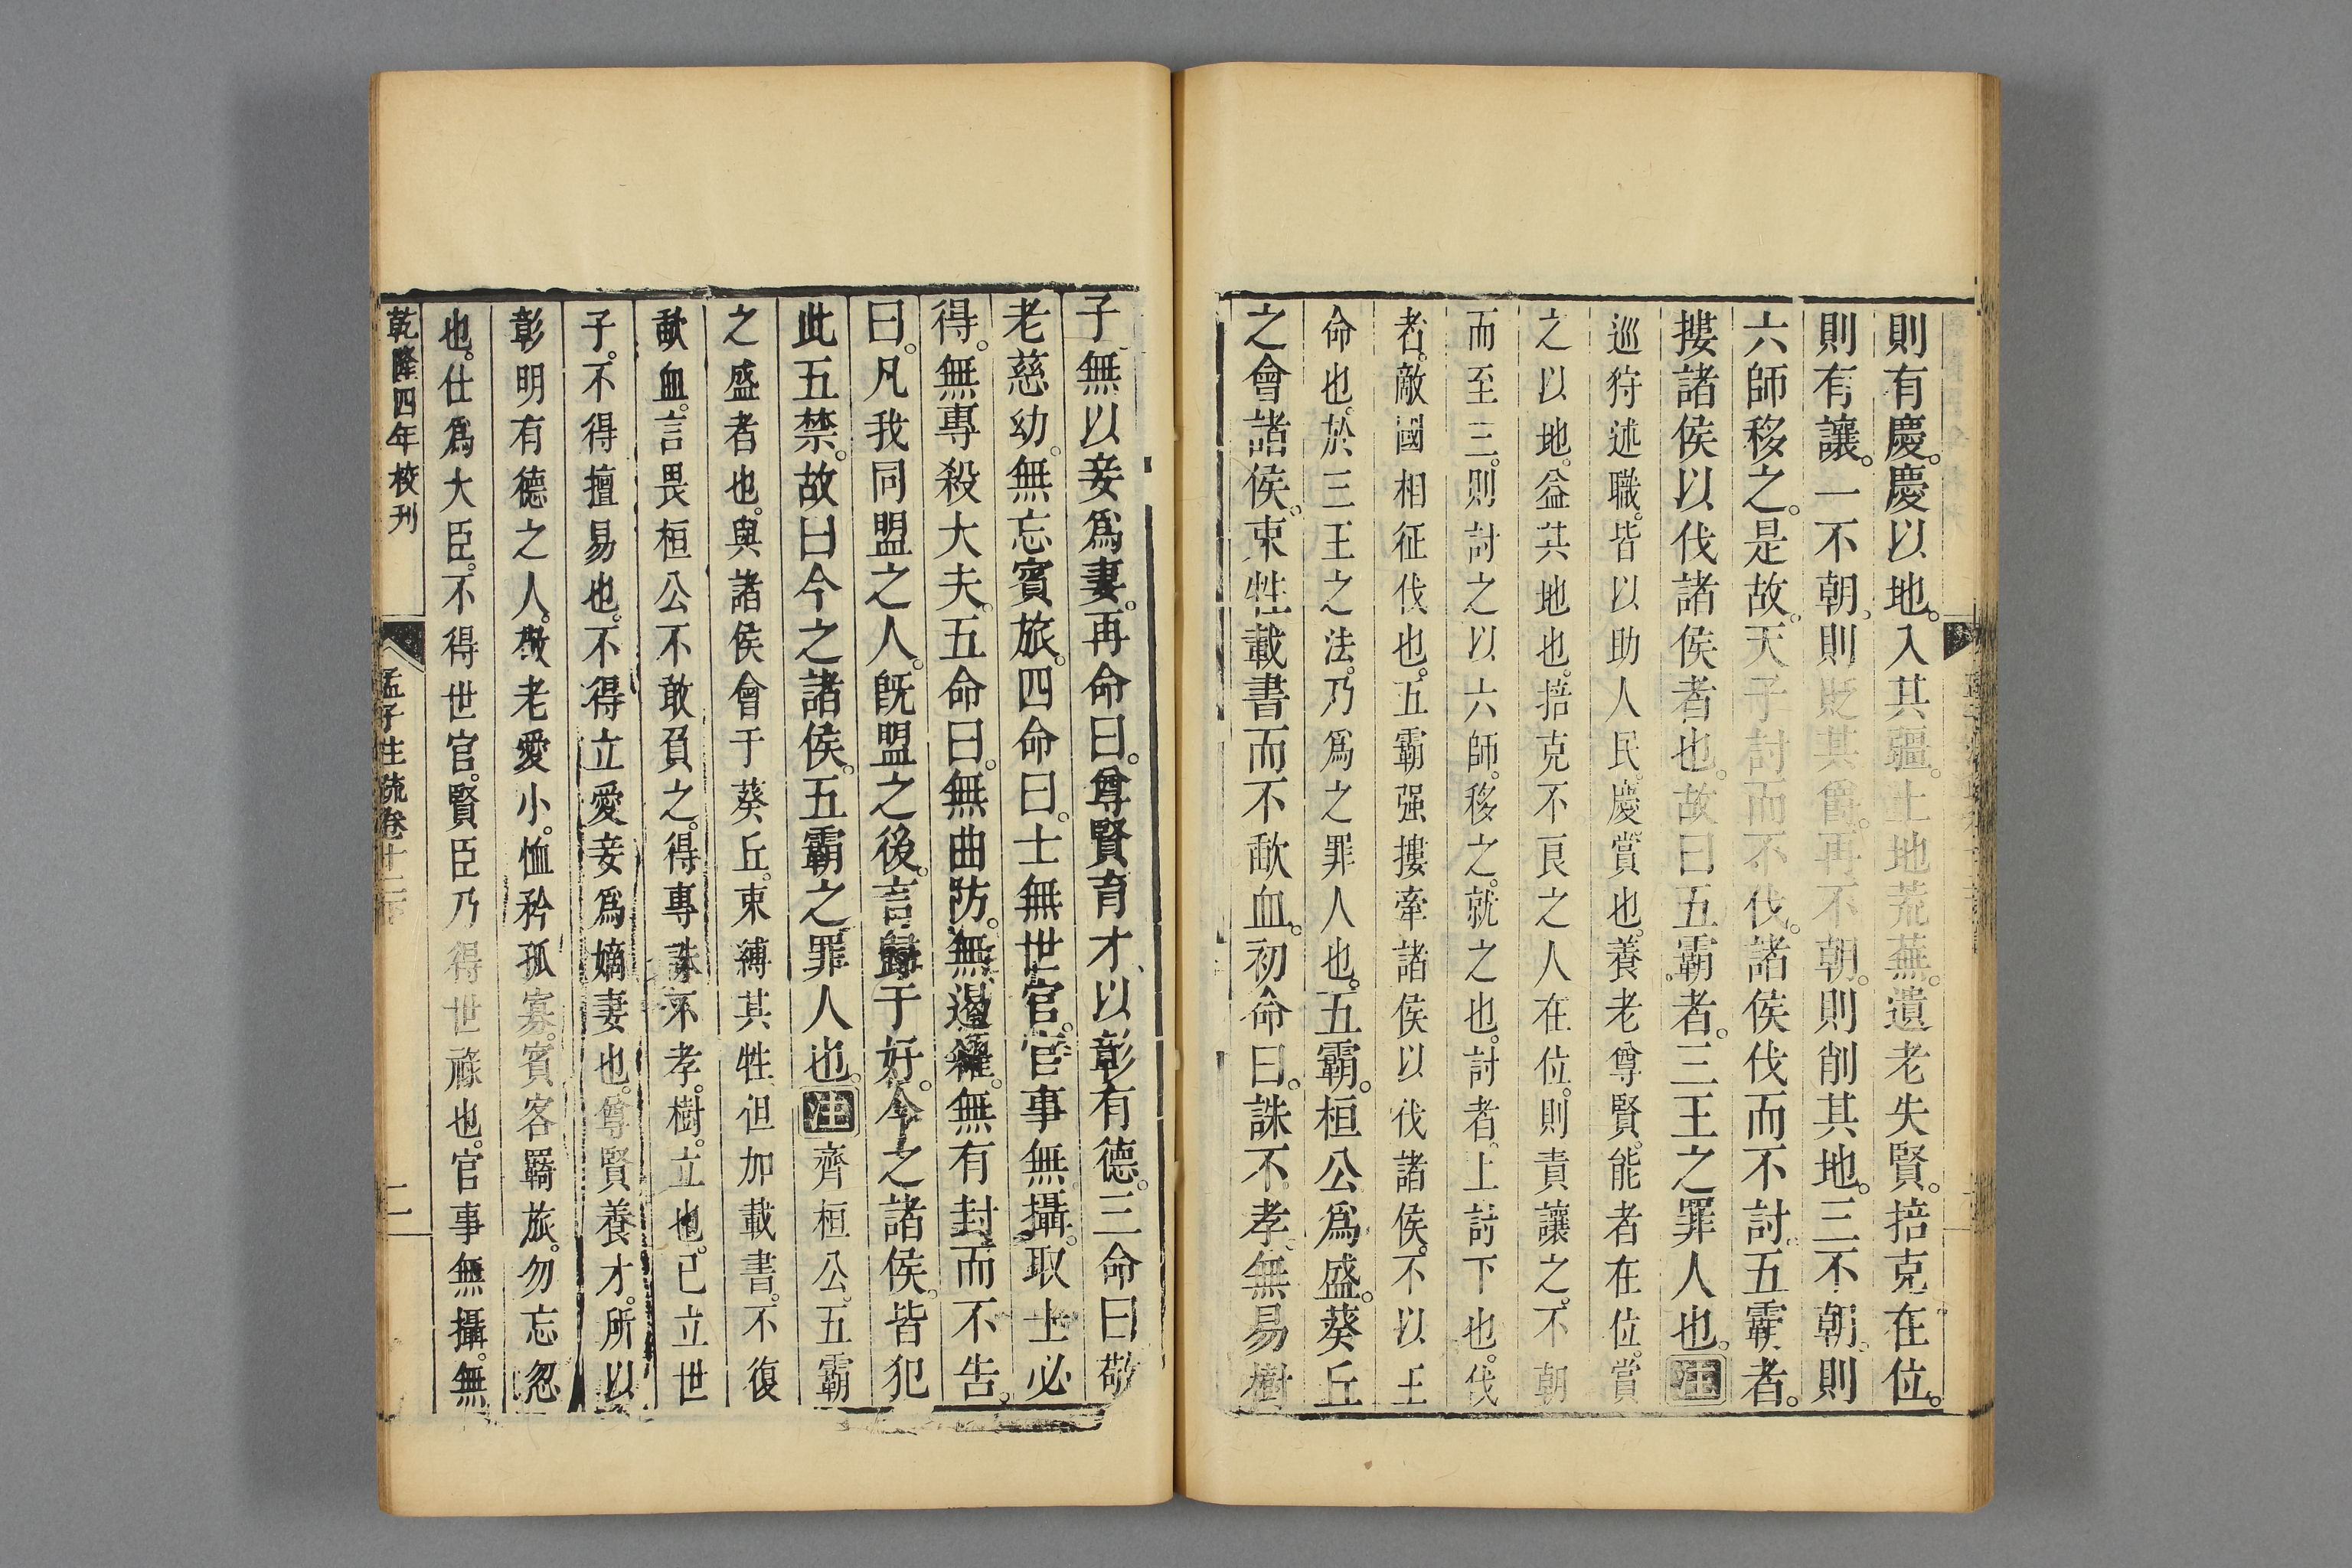 則有慶。慶以地。入其疆。土地荒蕪。遺老失賢。掊克在位。
則有讓。一不朝。則貶其爵。再不朝。則削其地。三不朝。則
六師移之。是故。天子討而不伐。諸侯伐而不討。五霸者。
摟諸侯以伐諸侯者也。故曰五霸者。三王之罪人也。注
巡狩述職。皆以助人民。慶賞也。養老尊賢。能者在位。賞
之以地。益其地也。掊克不良之人在位。則責讓之。不朝
而至三。則討之以六師。移之。就之也。討者。上討下也。伐
者。敵國相征伐也。五霸强摟牽諸侯以伐諸侯。不以王
命也。於三王之法。乃爲之罪人也。五霸。桓公爲盛。葵丘
之會諸侯。束牲載書而不歃血。初命曰。誅不孝。無易樹
子。無以妾爲妻。再命曰。尊賢育才。以彰有德。三命曰敬
老慈幼。無忘賓旅。四命曰。士無世官。官事無攝。取士必
得。無專殺大夫。五命曰。無曲防。無遏糴。無有封而不告。
曰。凡我同盟之人。旣盟之後。言歸于好。今之諸侯。皆犯
此五禁。故曰今之諸侯。五霸之罪人也。注齊桓公。五霸
之盛者也。與諸侯會于葵丘。束縛其牲但加載書。不復
歃血。言畏桓公不敢負之。得專誅不孝。樹。立也。已立世
子。不得擅易也。不得立愛妾爲嫡妻也。尊賢養才。所以
彰明有德之人。敬老愛小。恤矜孤寡。賓客羇旅。勿忘忽
也。仕爲大臣。不得世官。賢臣乃得世祿也。官事無攝。無
乾隆四年校刊
孟子注疏卷十二下
二